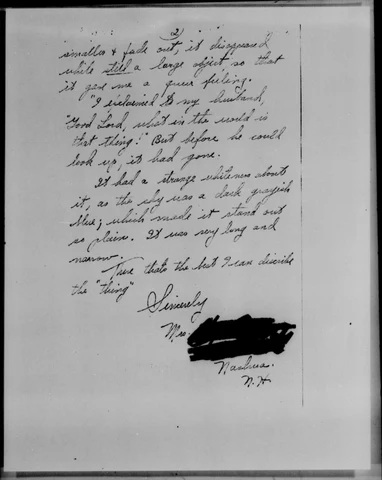 2)
smaller & fade out, it disappeared
while still a large object so that
it gave me a queer feeling.
"I exclaimed to my husband,
"Good Lord, what in the world is
that thing!" But before he could
look up, it had gone.
It had a strange whiteness about
it, as the sky was a dark grayish
blue; which made it stand out
so plain. It was very long and
narrow.
There thats the best I can discribe
the "thing"
Sincerely
Mrs.
Nashua.
N.H.